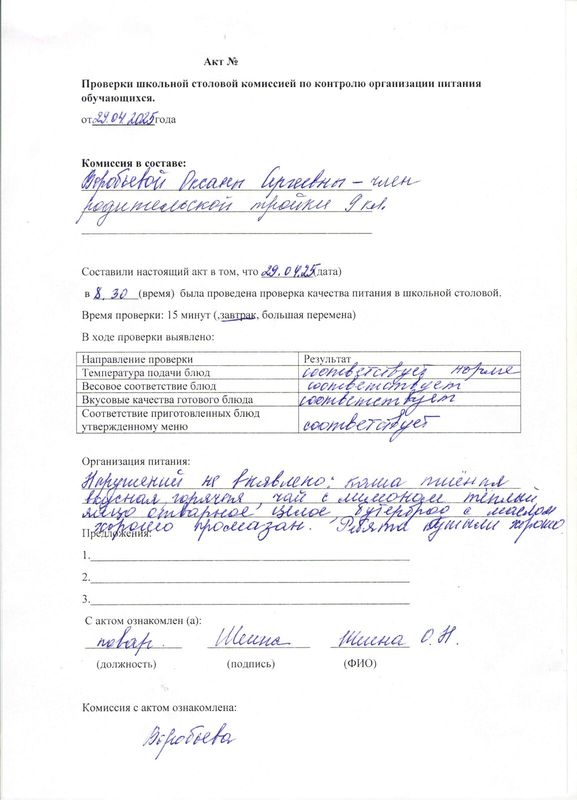 Акт №
Проверки школьной столовой комиссией по контролю организации питания
обучающихся.
от 29.04.2025 года
Комиссия в составе:
Воробьевой Оксаны Сергеевны – член
родительской тройки 9 кл.
Составили настоящий акт в том, что 29.04.25 (дата)
в 8.30 (время) была проведена проверка качества питания в школьной столовой.
Время проверки: 15 минут (,завтрак, большая перемена)
В ходе проверки выявлено:
Направление проверки Результат
Температура подачи блюд соответствует норме
Весовое соответствие блюд соответствует
Вкусовые качества готового блюда соответствует
Соответствие приготовленных блюд
утвержденному меню соответствует
Организация питания:
Нарушений не выявлено: каша пшённая
вкусная горячая, чай с лимоном тёплый,
яйцо отварное целое, бутерброд с маслом
хорошо промазан. Ребята кушали хорошо.
Предложения:
1.
2.
3.
С актом ознакомлен (а):
повар Шеина Шеина О.Н.
(должность) (подпись) (ФИО)
Комиссия с актом ознакомлена:
Воробьева